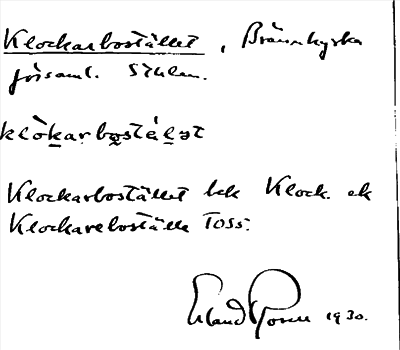 Klockarbostället, Brännkyrka
församl. Sthlm.
klòkarbostälət
Klockarbostället bek Klock. ek
Klockareboställe TOSS:
Erland Rosell 1930.